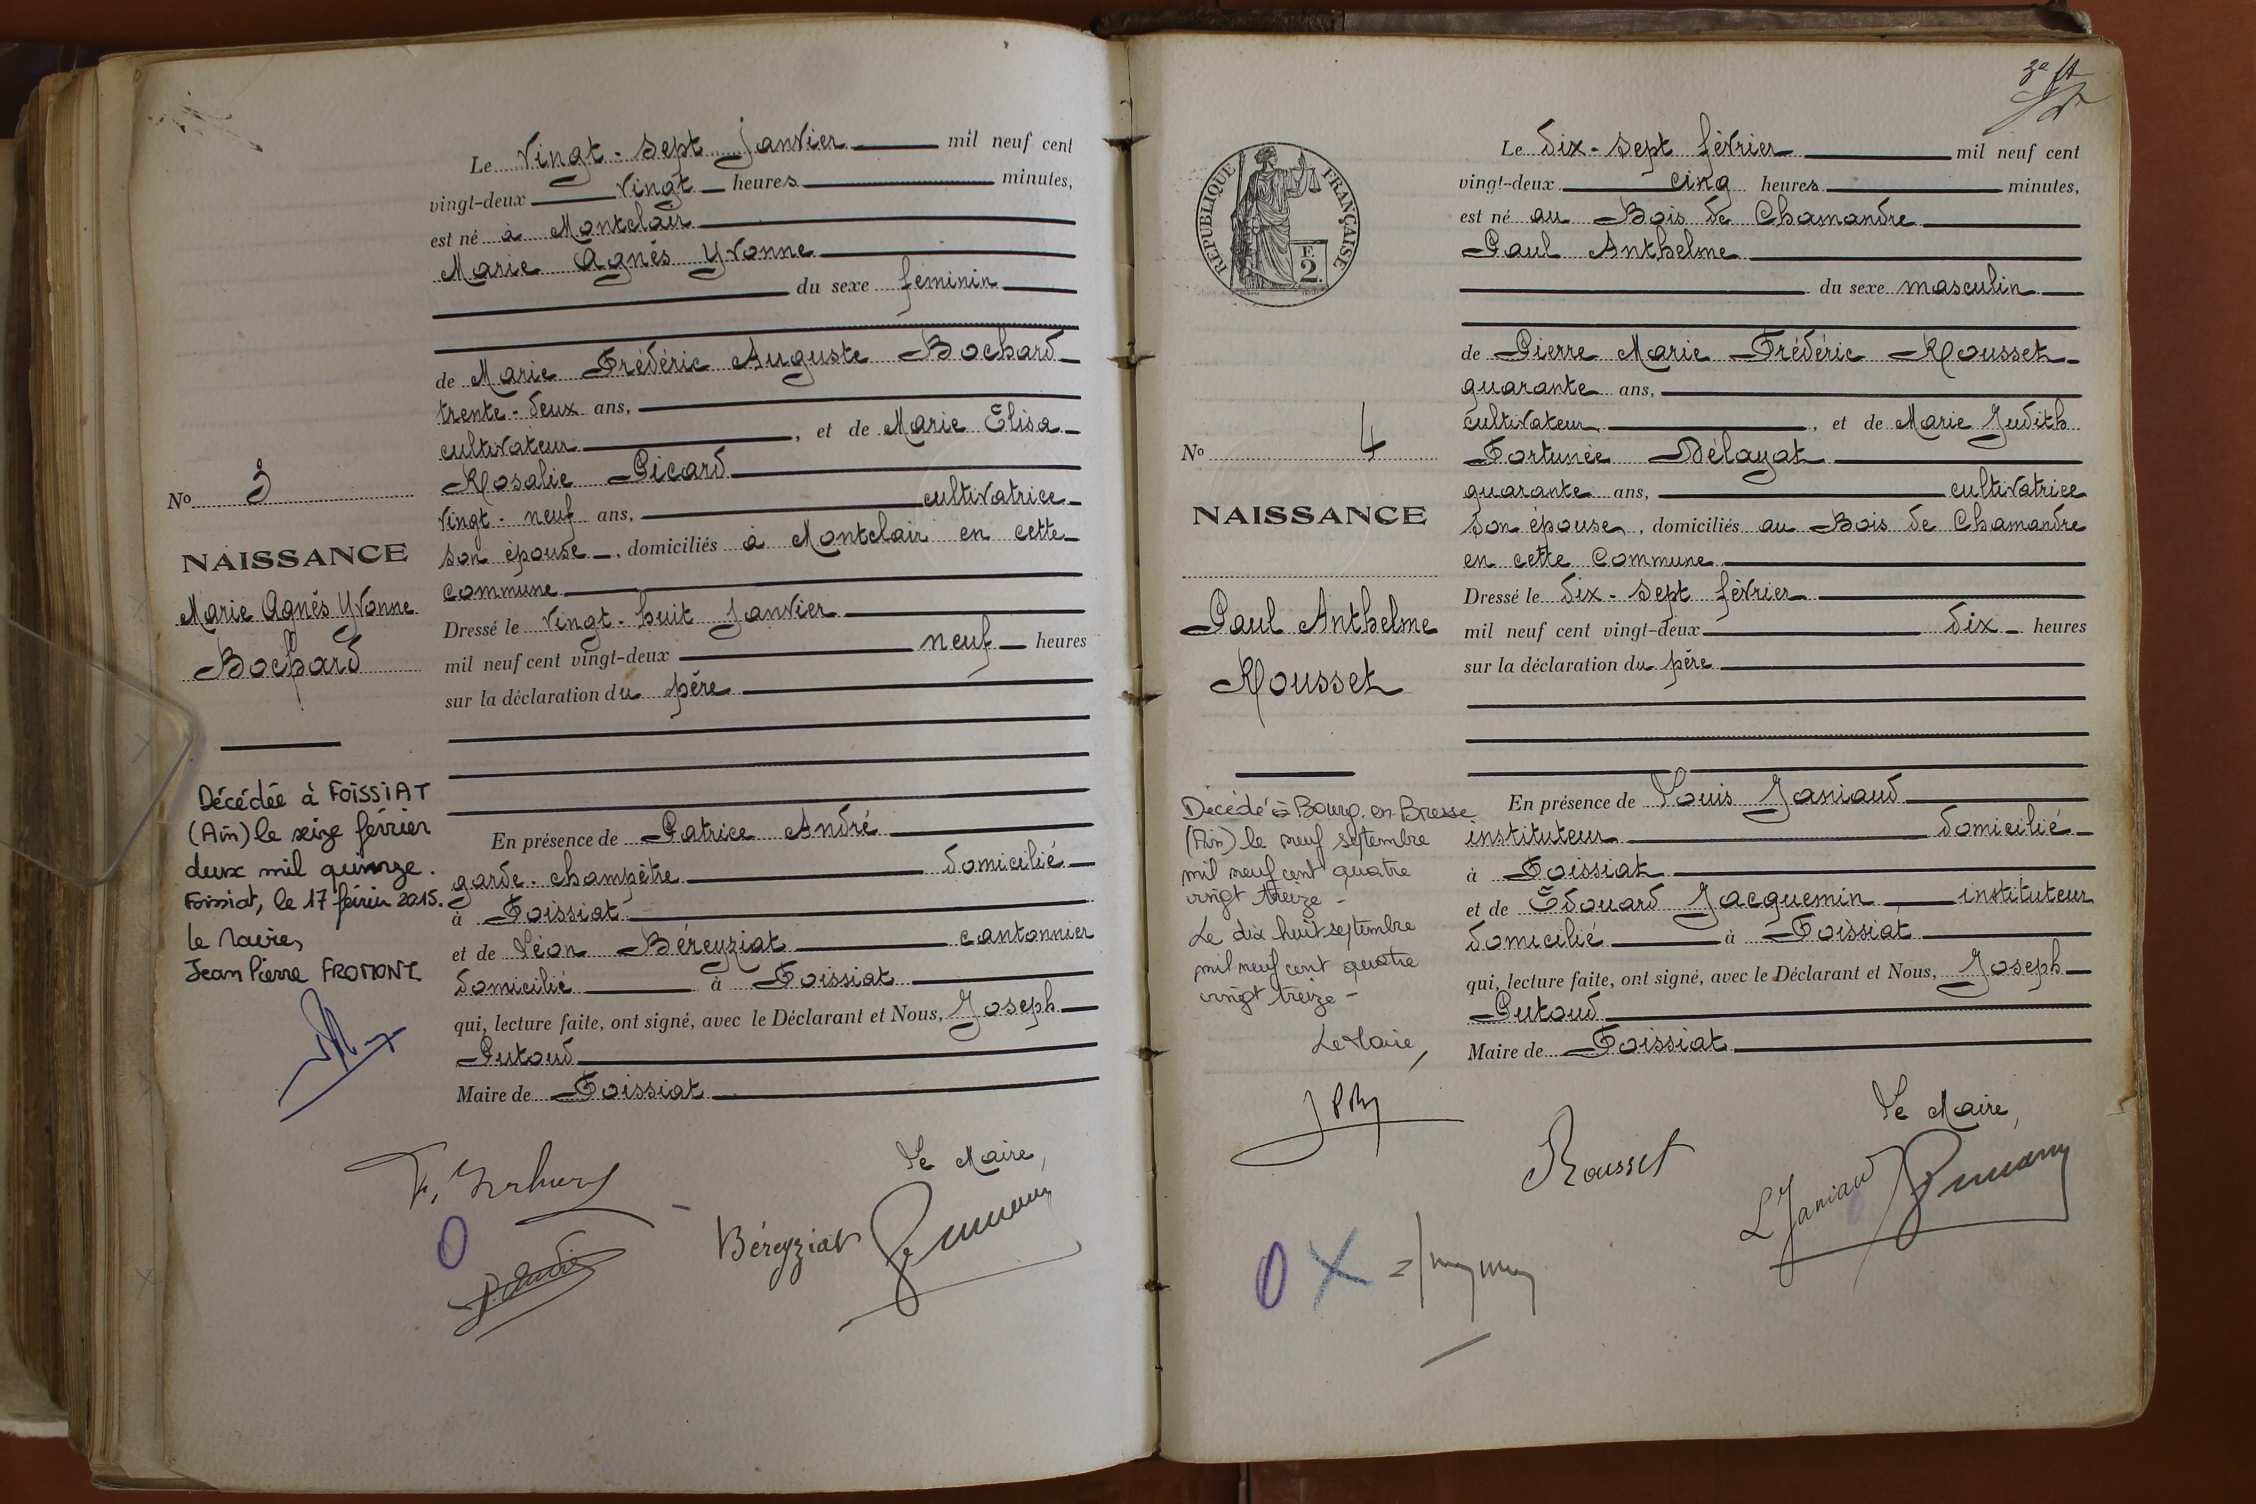 Le vingt-sept janvier mil neuf cent
vingt-deux vingt heures minutes,
est né à Montclair
Marie Agnés Yvonne
du sexe féminin
de Marie Frédéric Auguste Bochard
trente-deux ans,
cultivateur, et de Marie Elisa
Rosalie Picard
vingt-neuf ans, cultivatrice
son épouse, domiciliés à Montclair en cette
commune
Dressé le vingt-huit janvier
mil neuf cent vingt-deux neuf heures
sur la déclaration du père
En présence de Patrice André
garde-champêtre domicilié
à Foissiat
et de Léon Béreyziat cantonnier
domicilié à Foissiat
qui, lecture faite, ont signé, avec le Déclarant et Nous, Joseph
Putoud
Maire de Foissiat
Le Maire,
Béreyziat
No 3
NAISSANCE
Marie Agnés Yvonne
Bochard
Décédée à FOISSIAT
(Ain) le seize février
deux mil quinze.
Foissiat, le 17 février 2015.
le Maire,
Jean Pierre FROMONT
Le dix-sept février mil neuf cent
vingt-deux cinq heures minutes,
est né au Bois de Chamandre
Paul Anthelme
du sexe masculin
de Pierre Marie Frédéric Rousset
quarante ans,
cultivateur, et de Marie Judith
Fortunée Délayat
quarante ans, cultivatrice
son épouse, domiciliés au Bois de Chamandre
en cette commune
Dressé le dix-sept février
mil neuf cent vingt-deux dix heures
sur la déclaration du père
En présence de Louis Janiaud
instituteur domicilié
à Foissiat
et de Edouard Jacquemin instituteur
domicilié à Foissiat
qui, lecture faite, ont signé, avec le Déclarant et Nous, Joseph
Putoud
Maire de Foissiat
Le Maire,
Rousset
L Janiaud
RÉPUBLIQUE FRANÇAISE
E
2
No 4
NAISSANCE
Paul Anthelme
Rousset
Décédé à Bourg-en-Bresse
(Ain) le neuf septembre
mil neuf cent quatre
vingt treize -
Le dix huit septembre
mil neuf cent quatre
vingt treize -
Le Maire,